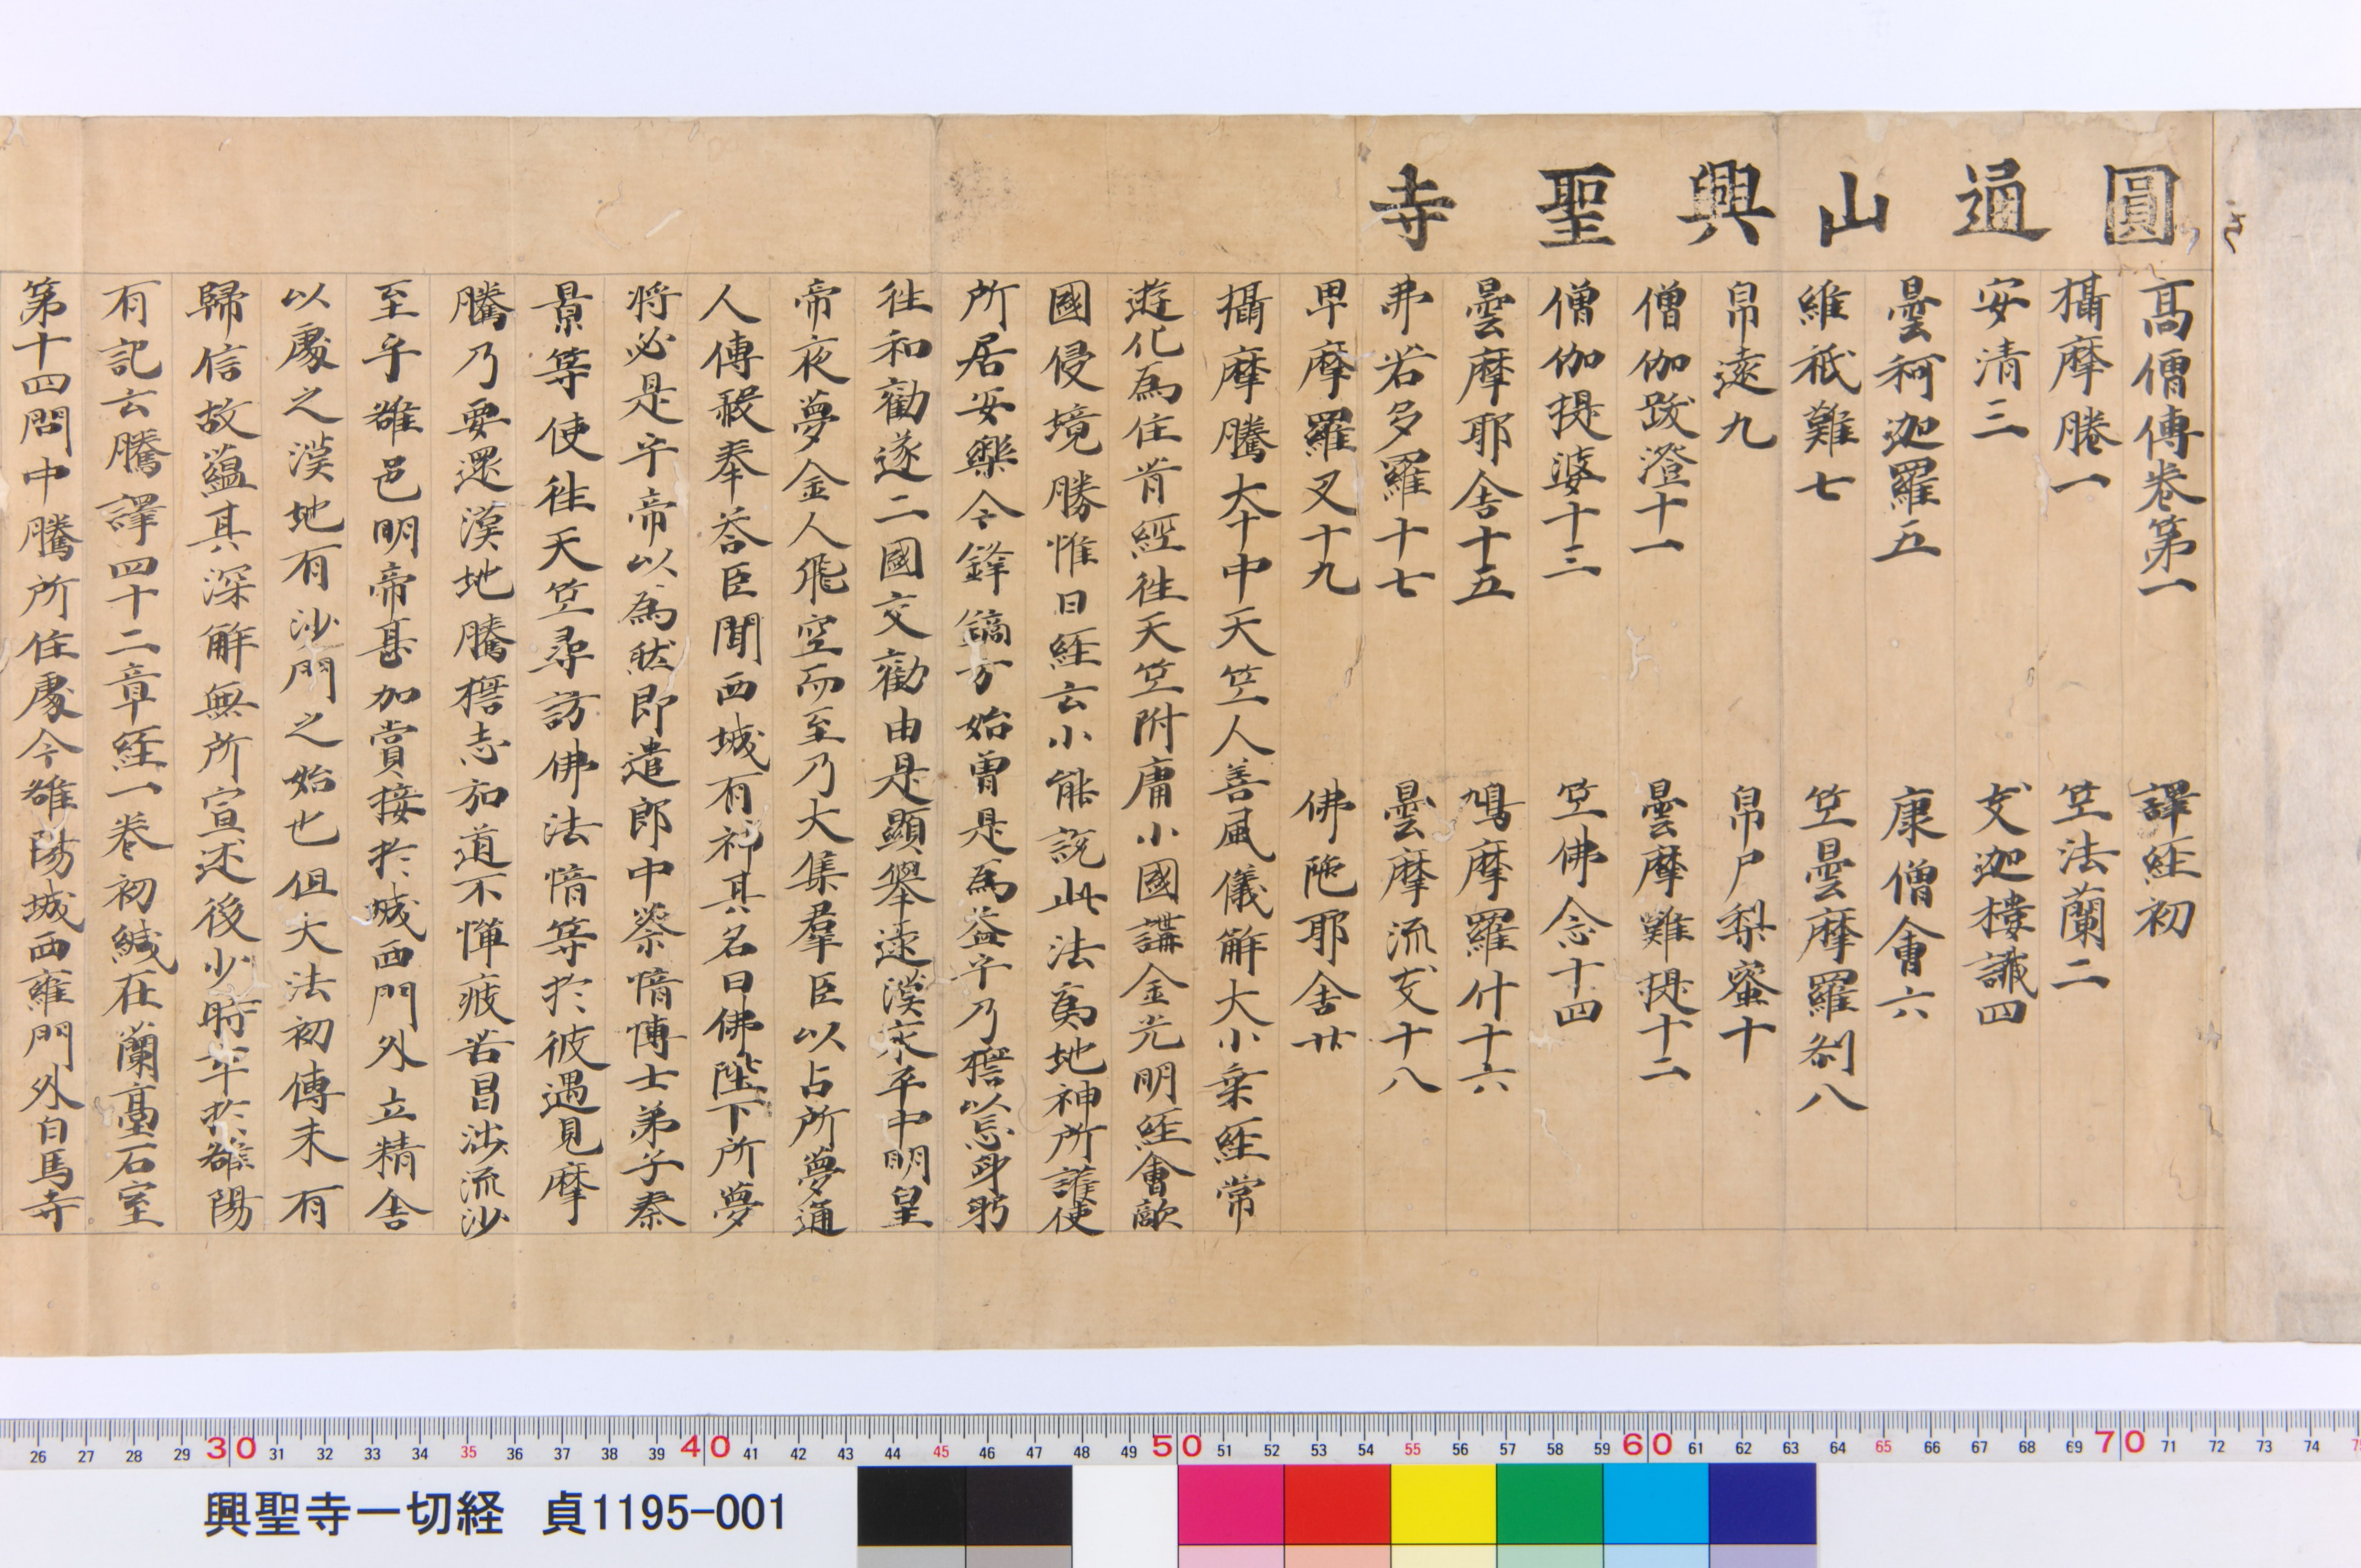 圓通山興聖寺
高僧傳卷第一 譯経初
攝摩騰一 笁法蘭二
安清三 支迦樓讖四
曇柯迦羅五 康僧會六
維祇難七 笁曇摩羅刹八
帛遠九 帛尸梨蜜十
僧伽跋澄十一 曇摩難提十二
僧伽提婆十三 笁佛念十四
曇摩耶舍十五 鳩摩羅什十六
弗若多羅十七 曇摩流支十八
卑摩羅叉十九 佛陁耶舍廿
攝摩騰本中天笁人善風儀解大小乘経常
遊化為任昔經往天笁附庸小國講金光明経會敵
國侵境勝惟曰経云小能説此法為地神所護使
所居安樂今鋒鏑方始曽是為益乎乃誓以忘身躬
往和勸遂二國交勸由是顯舉逮漢永平中明皇
帝夜夢金人飛空而至乃大集羣臣以占所夢通
人傳毅奉荅臣聞西域有神其名曰佛陛下所夢
将必是乎帝以為然即遣郎中蔡愔愽士弟子秦
景等使往天笁尋訪佛法愔等於彼遇見摩
騰乃要還漢地騰誓志加道不憚疲苦冒渉流沙
至乎雒邑明帝甚加賞接於城西門外立精舍
以處之漢地有沙門之始也但大法初傳未有
歸信故蘊其深解無所宣述後少時卒於雒陽
有記云騰譯四十二章経一卷初緘在蘭臺石室
第十四間中騰所住處今雒陽城西雍門外白馬寺
26 27 28 29 30 31 32 33 34 35 36 37 38 39 40 41 42 43 44 45 46 47 48 49 50 51 52 53 54 55 56 57 58 59 60 61 62 63 64 65 66 67 68 69 70 71 72 73 74
興聖寺一切経 貞1195-001